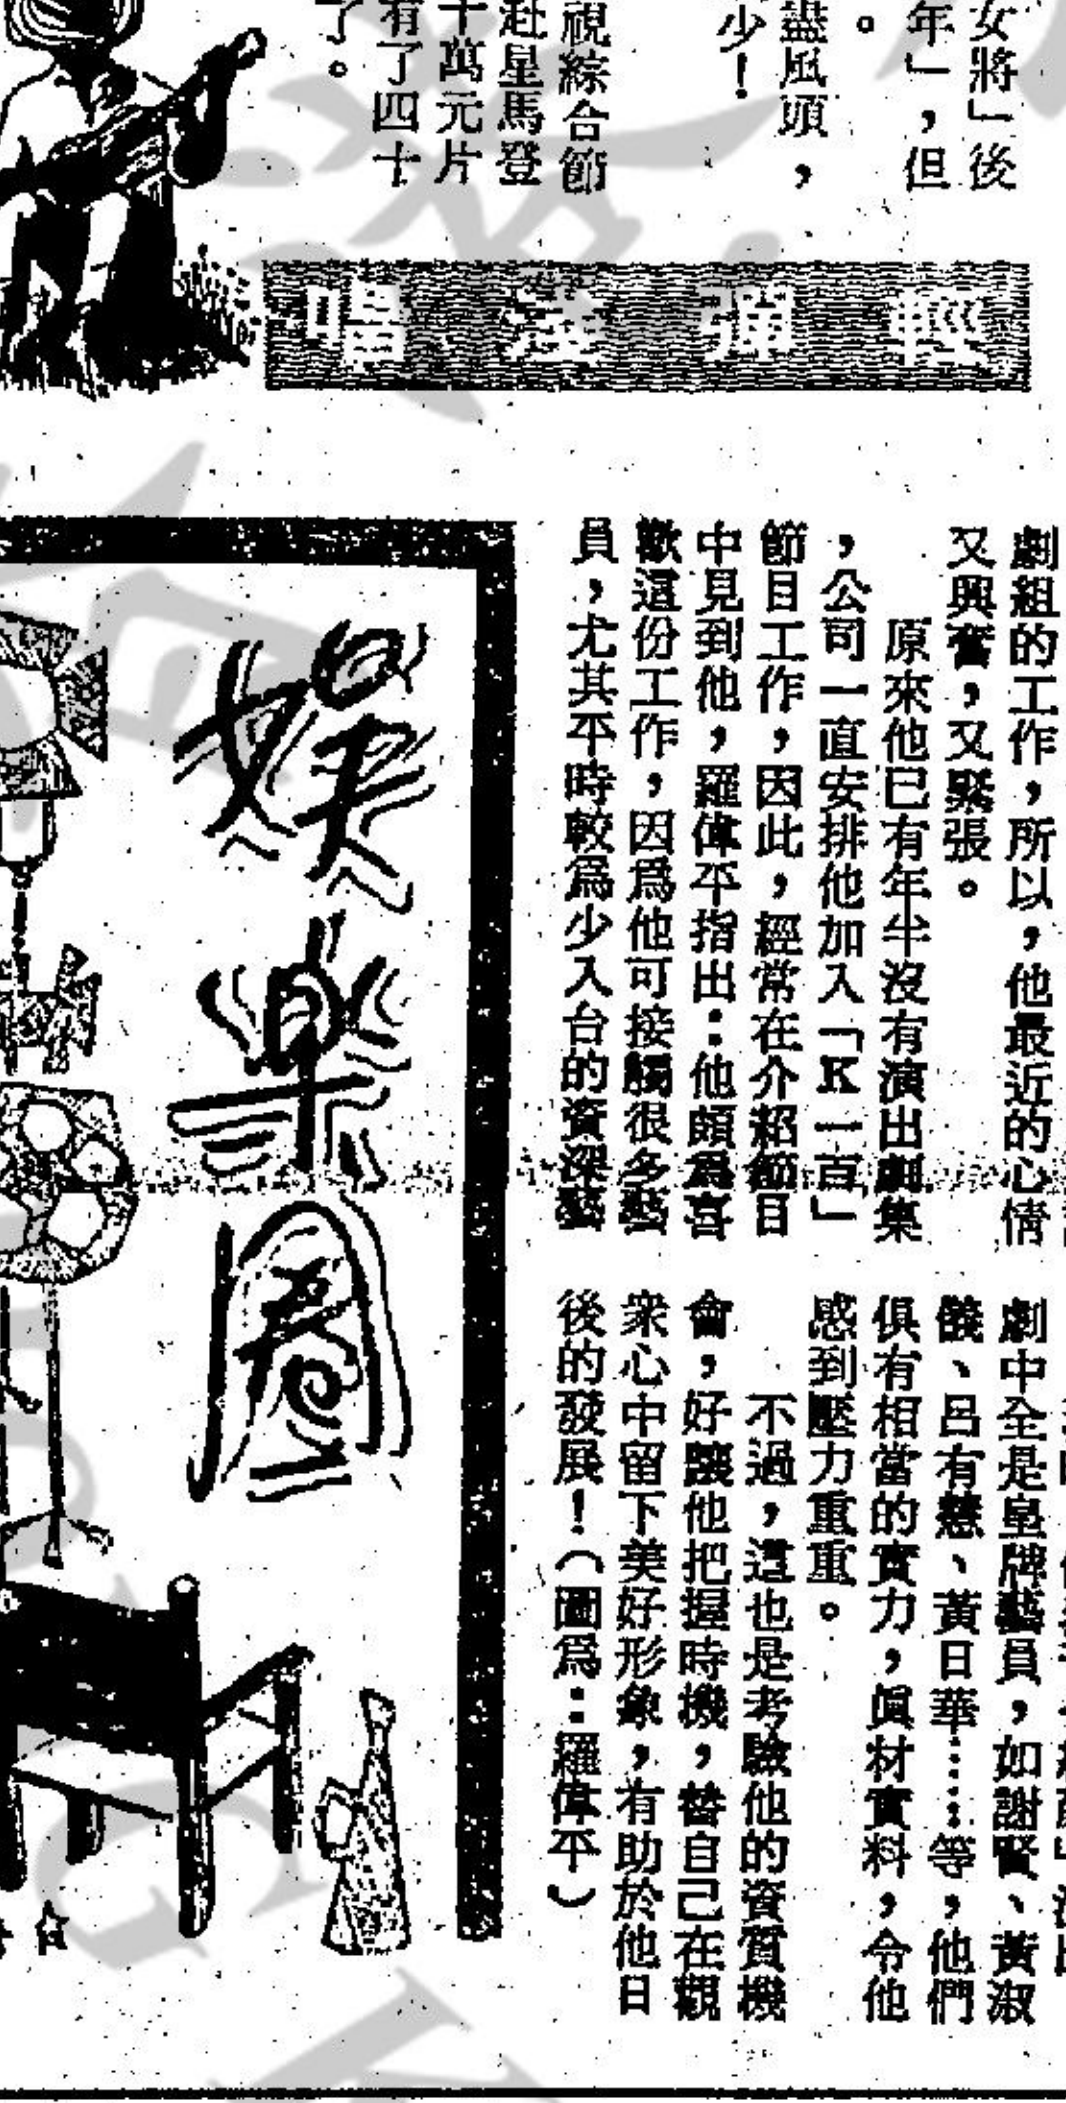 女將」後
年」，但
。
盡風頭，
少！
視綜合節
赴星馬登
十萬元片
有了四十
了。
輕彈淺唱
劇組的工作，所以，他最近的心情
又興奮，又緊張。
原來他已有年半沒有演出劇集
，公司一直安排他加入「K一百」
節目工作，因此，經常在介紹節目
中見到他，羅偉平指出：他頗爲喜
歡這份工作，因爲他可接觸很多藝
員，尤其平時較爲少入台的資深藝
劇中全是皇牌藝員，如謝賢、黃淑
儀、呂有慧、黃日華……等，他們
俱有相當的實力，眞材實料，令他
感到壓力重重。
不過，這也是考驗他的資質機
會，好讓他把握時機，替自己在觀
衆心中留下美好形象，有助於他日
後的發展！（圖爲：羅偉平）
娛樂圈